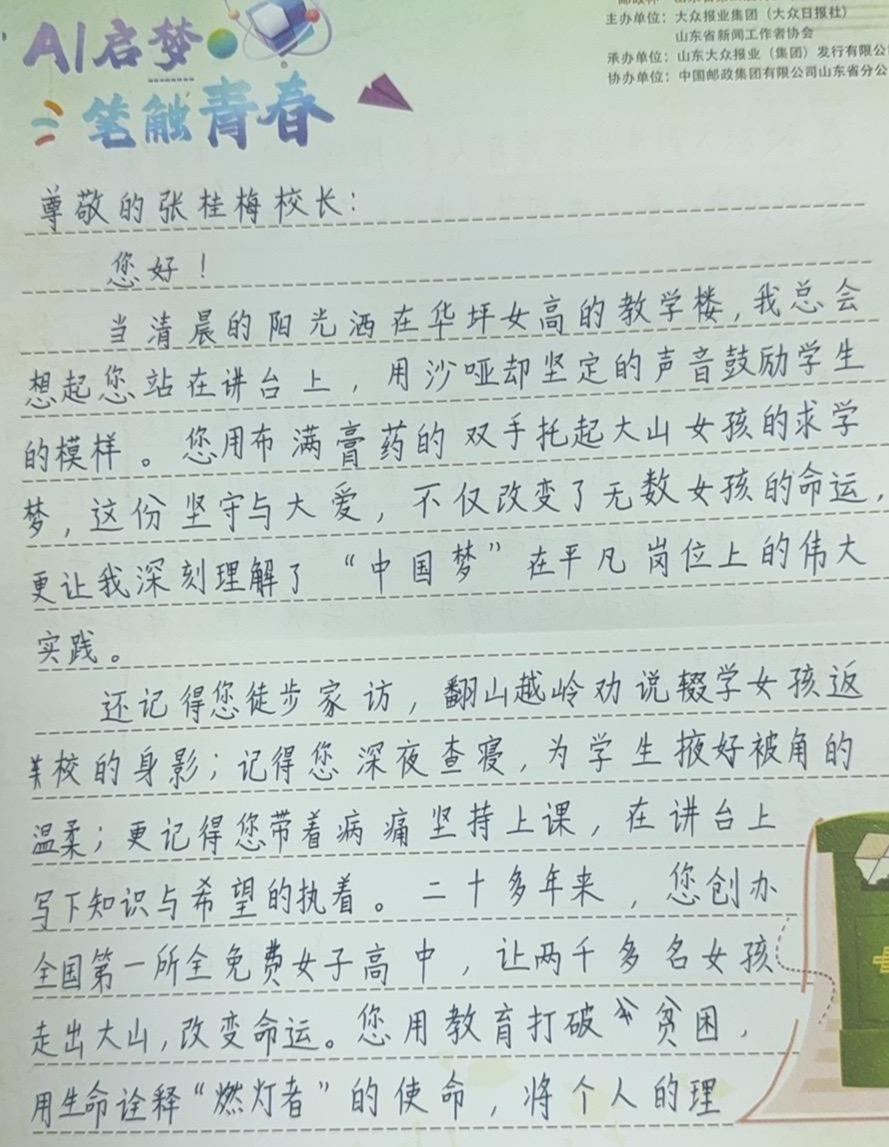 AI启梦
笔触青春
主办单位：大众报业集团（大众日报社）
山东省新闻工作者协会
承办单位：山东大众报业（集团）发行有限公
协办单位：中国邮政集团有限公司山东省分公
尊敬的张桂梅校长：
您好！
当清晨的阳光洒在华坪女高的教学楼，我总会
想起您站在讲台上，用沙哑却坚定的声音鼓励学生
的模样。您用布满膏药的双手托起大山女孩的求学
梦，这份坚守与大爱，不仅改变了无数女孩的命运，
更让我深刻理解了“中国梦”在平凡岗位上的伟大
实践。
还记得您徒步家访，翻山越岭劝说辍学女孩返
校的身影；记得您深夜查寝，为学生掖好被角的
温柔；更记得您带着病痛坚持上课，在讲台上
写下知识与希望的执着。二十多年来，您创办
全国第一所全免费女子高中，让两千多名女孩
走出大山，改变命运。您用教育打破贫困，
用生命诠释“燃灯者”的使命，将个人的理